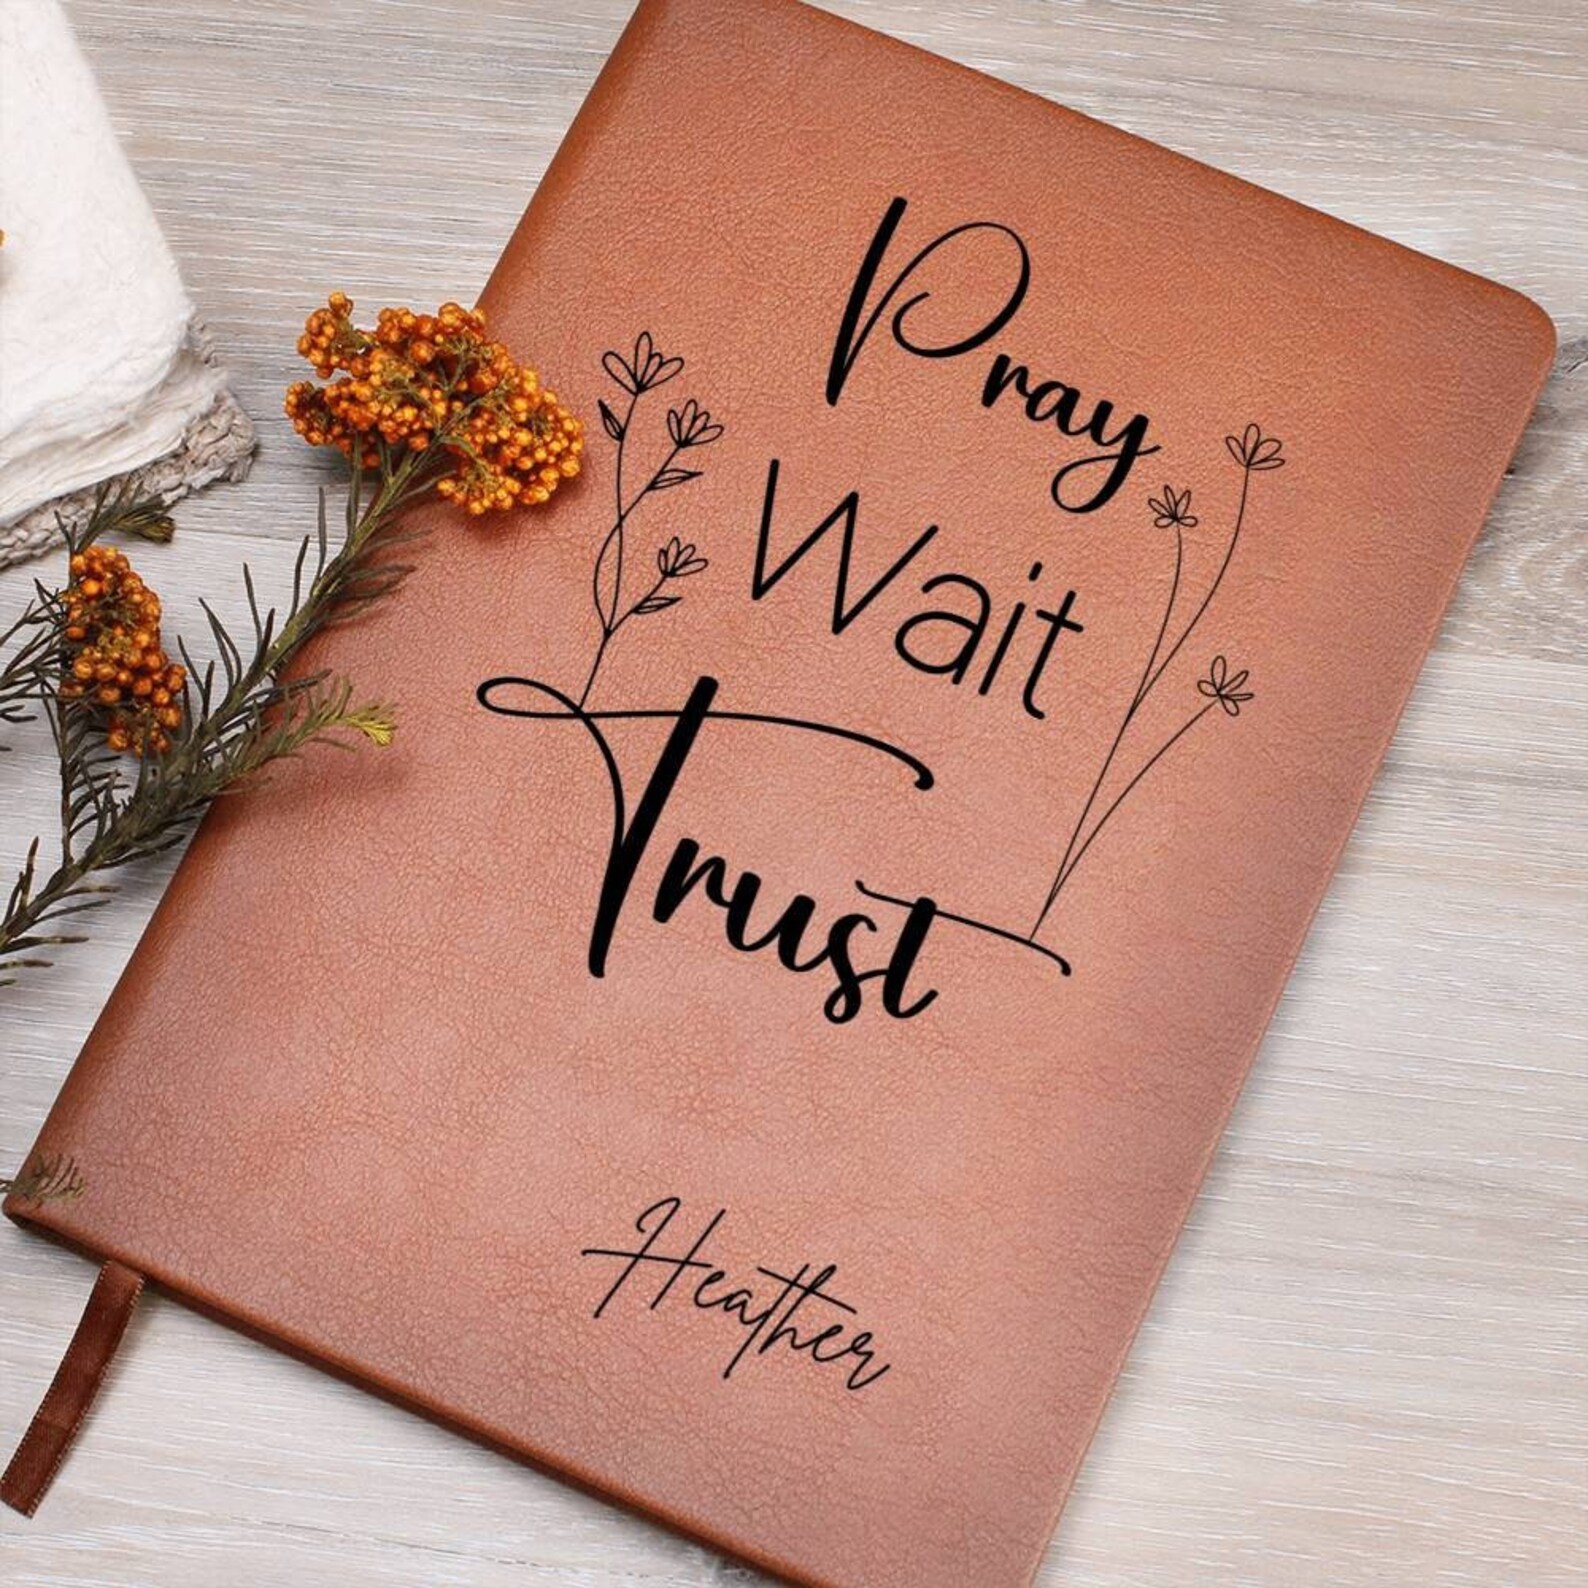 Pray
Wait
Trust
Heather